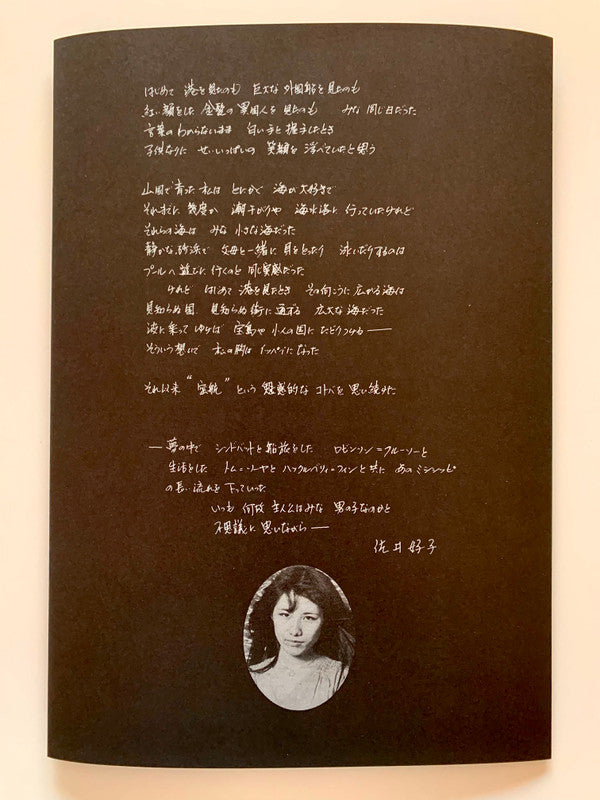 はじめて 港を見たのも 巨大な外国船を見たのも
紅い顔をした 金髪の異国人を見たのも みな同じ日だった
言葉のわからないまま 白い手と握手したとき
子供なりに せいいっぱいの 笑顔を浮べていたと思う
山国で育った私は とにかく 海が大好きで
それまでに幾度か 潮干がりや 海水浴に行っていたけれど
それらの海は みな小さな海だった
静かな砂浜で 父母と一緒に 貝をとったり 泳いだりするのは
プールへ遊びに行くのと 同じ実感だった
けれど はじめて港を見たとき その向こうに広がる海は
見知らぬ国 見知らぬ街に通ずる 広大な海だった
波に乗って ゆけば 宝島や 小人の国に たどりつける──
そういう想いで 私の胸は イッパイになった
それ以来 “密航” という 魅惑的な コトバを思い続けた
──夢の中で シンドバットと船旅をした ロビンソン=クルーソーと
生活をした トム=ソーヤと ハックルベリィ=フィンと共に あのミシシッピ
の長い流れを下っていった
いつも 何故 主人公はみな 男の子なのかと
不思議に思いながら──
佐井好子